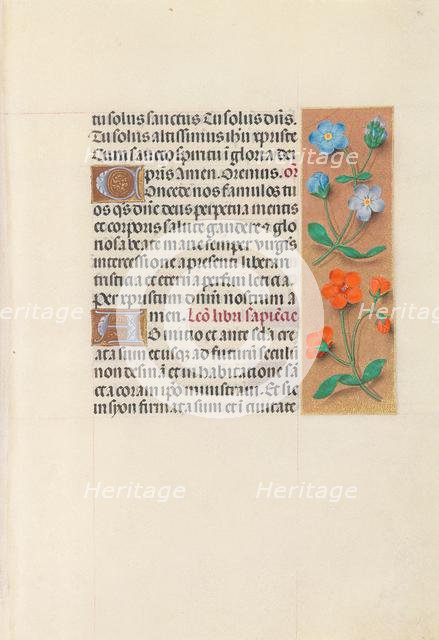 tu solus sanctus Tu solus dñs.
Tu solus altissimus ihũ xpriste
Cum sancto spiritu ĩ gloria dei
pris Amen. Oremus. Or
Concede nos famulos tu
os q̃s dñe deus perpetua mentis
et corporis salute gaudere & glo
riosa beate marie semper virgĩs
intercessione a presenti liberari
tristicia et eterna perfrui letitia.
Per xpristum dñm nostrum a
men. Leõ libri sapiẽtie
Ab initio et ante sc̃la cre
ata sum et usq̃ ad futurũ seculũ
non desinã et in habitatione sã
cta coram ip̃o ministravi. Et sic
in syon firmata sum et ĩ civitate
Heritage Heritage
Heritage Heritage
Heritage Heritage